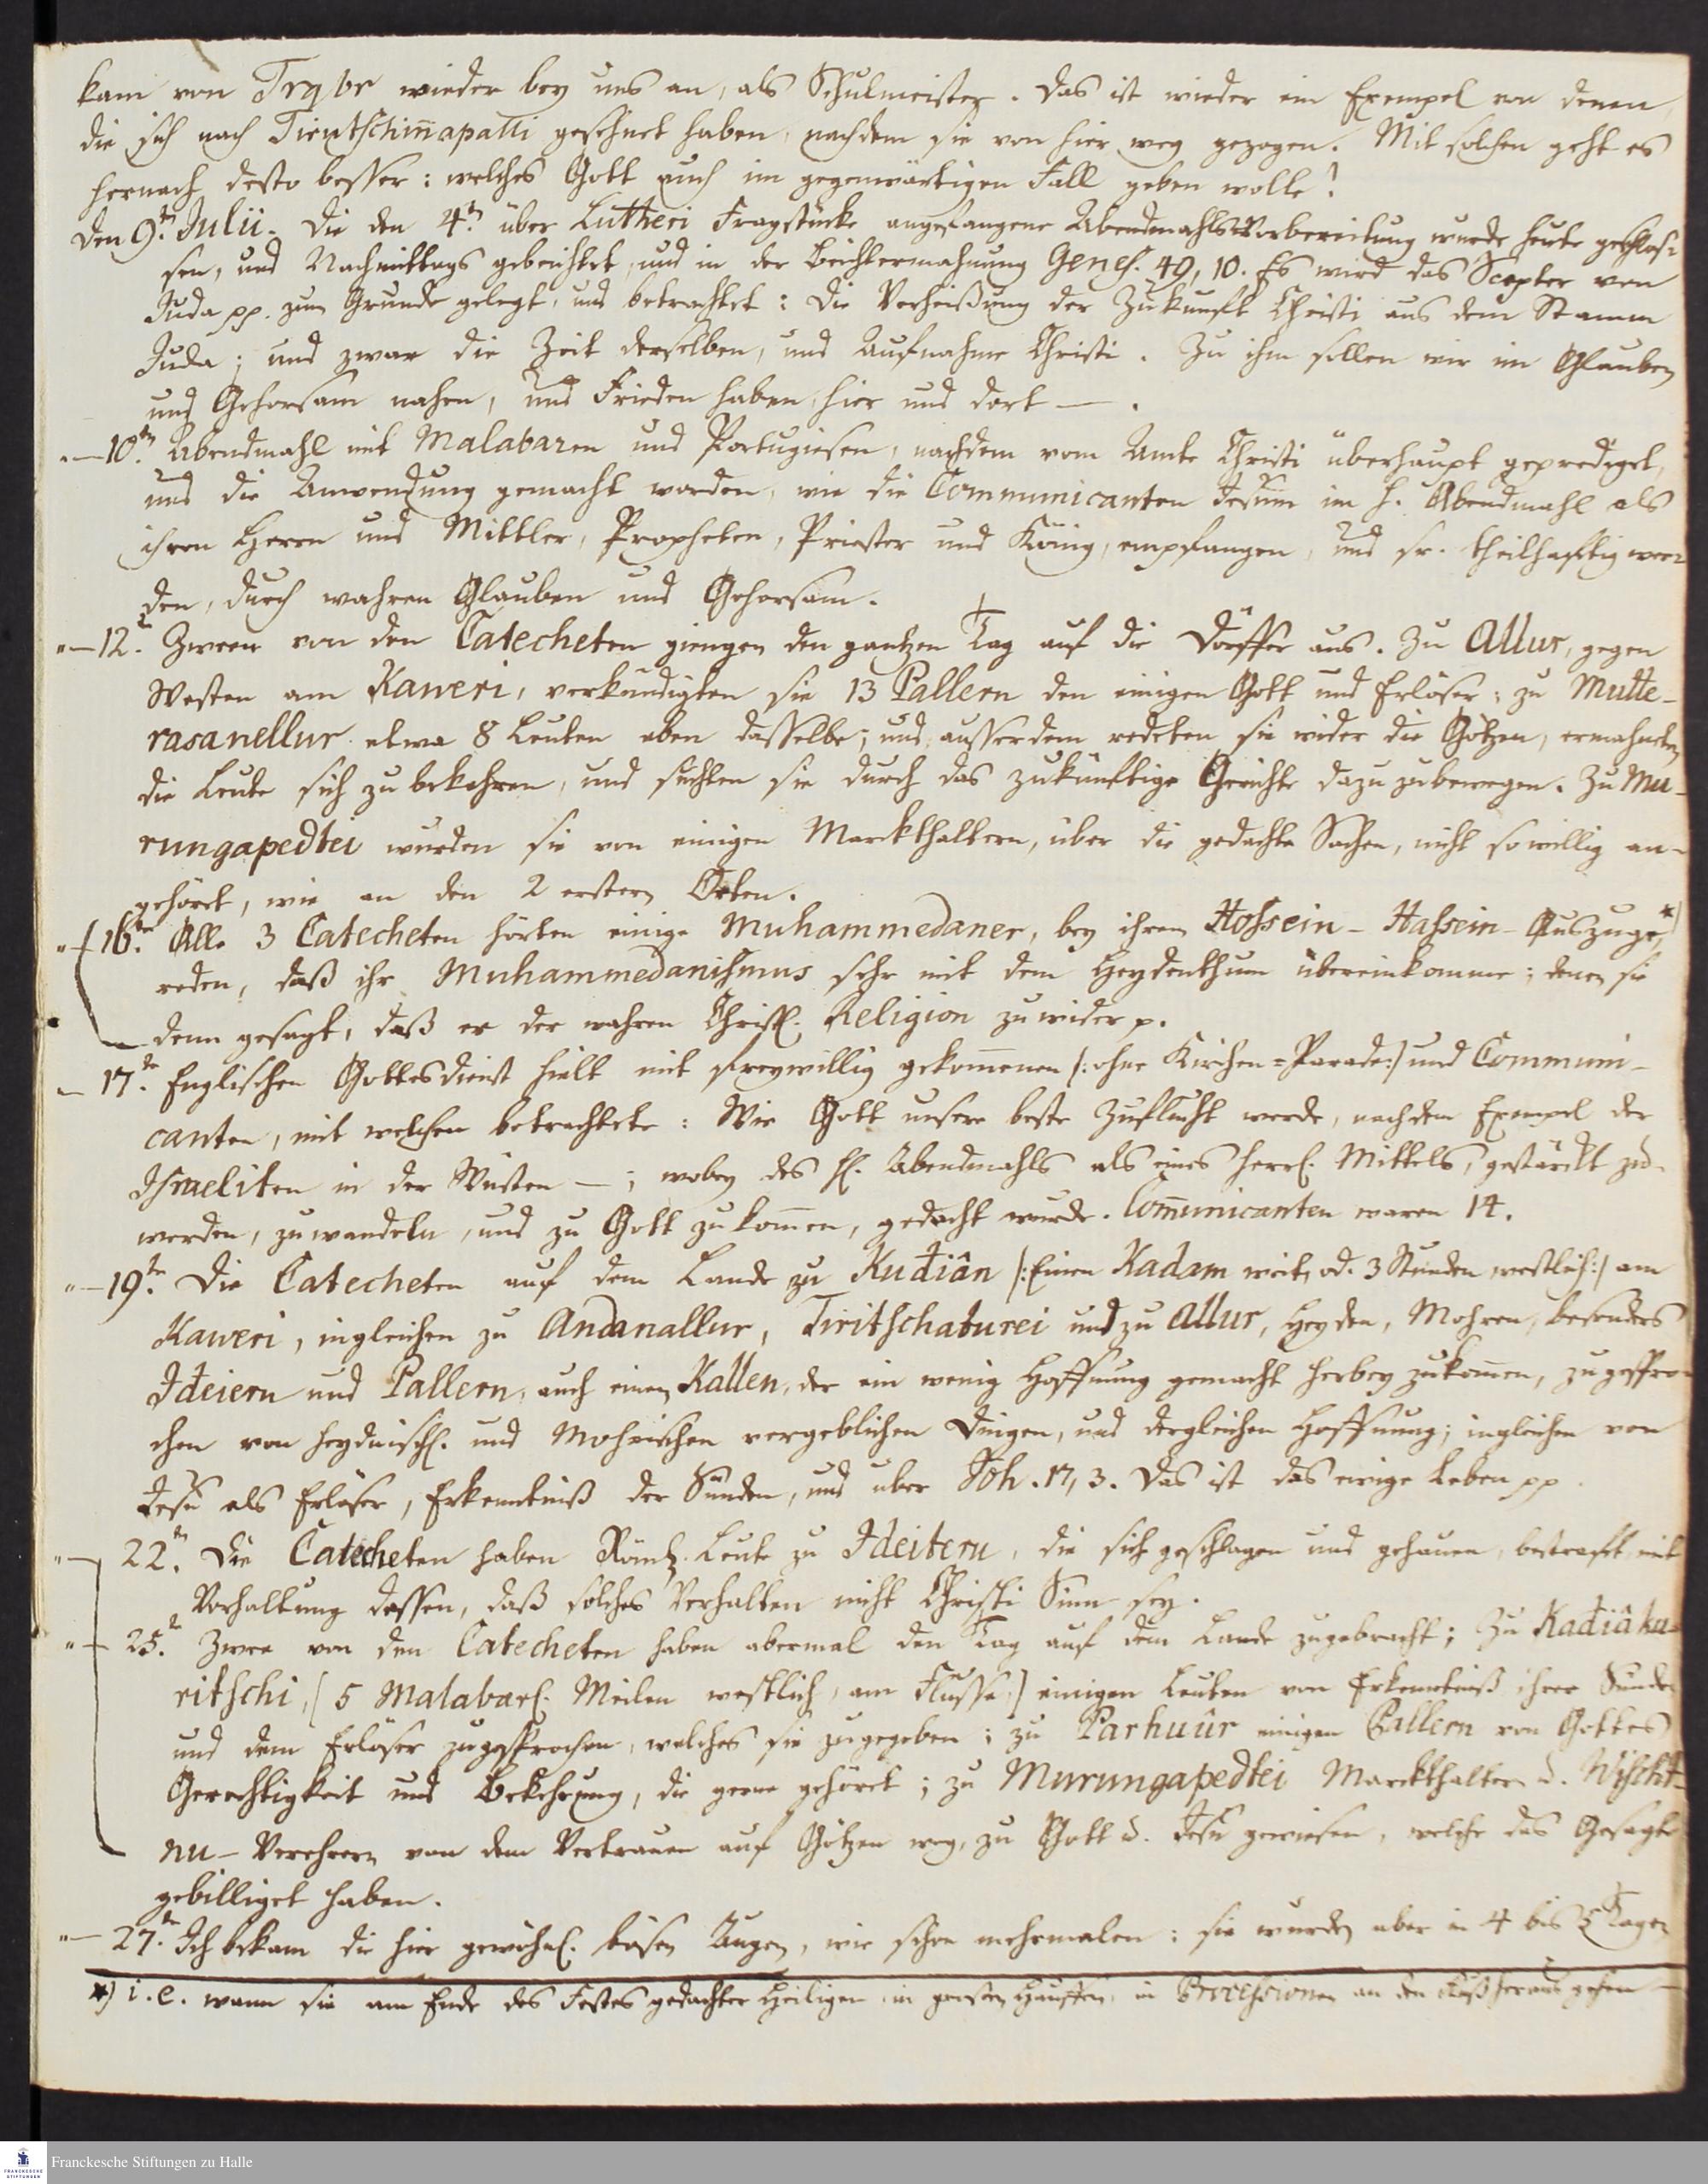 kam von Trgbr wieder bey uns an, als Schulmeister. Das ist wieder ein Exempel von denen,
die sich nach Tirutschinapalli gesehnet haben, nachdem sie von hier weg gezogen. Mit solchen geht es
hernach desto besser: welches Gott auch im gegenwärtigen Fall geben wolle!
Den 9.t Julii. Die den 4.t über Lutheri Fragstücke angefangene Abendmahls-Vorbereitung wurde heute geschlos-
sen, und Nachmittags gebeichtet, und in der Beichtermahnung Genes. 49, 10. Es wird das Scepter von
Juda pp. zum Grunde gelegt, und betrachtet: Die Verheißung der Zukunft Christi aus dem Stamm
Juda; und zwar die Zeit derselben, und Aufnahme Christi. Zu ihm sollen wir im Glauben
und Gehorsam nahen, und Frieden haben hier und dort —.
"— 10.tn Abendmahl mit Malabaren und Portugiesen, nachdem vom Amte Christi überhaupt geprediget,
und die Anwendung gemacht worden, wie die Communicanten Jesum im h. Abendmahl als
ihren Herrn und Mittler, Propheten, Priester und König, empfangen, und sr. theilhaftig wer-
den, durch wahren Glauben und Gehorsam.
"— 12.t Zween von den Catecheten giengen den gantzen Tag auf die Dörffer aus. Zu Allur, gegen
Westen am Kaweri, verkündigten sie 13 Pallern den einigen Gott und Erlöser; zu Mutte-
rasanellur etwa 8 Leuten eben dasselbe; und ausserdem redeten sie wider die Götzen, ermahneten
die Leute sich zu bekehren, und suchten sie durch das zukünftige Gerichte dazu zubewegen. Zu Mu-
rungapedtei wurden sie von einigen Marckthaltern, über die gedachte Sachen, nicht so willig an-
gehöret, wie an den 2 ersten Orten.
"— 16.tn Alle 3 Catecheten hörten einige Muhammedaner, bey ihrem Hossein-Hassein-Auszuge, *)
reden, daß ihr Muhammedanismus sehr mit dem Heydenthum übereinkomme; denen sie
denn gesagt, daß er der wahren Christl. Religion zuwider p.
— 17.tn Englischen Gottesdienst hielt mit freywillig gekommenen /: ohne Kirchen=Parade :/ und Communi-
canten, mit welchen betrachtete: Wie Gott unsere beste Zuflucht werde, nach dem Exempel der
Israeliten in der Wüsten —; wobey des hl. Abendmahls als eines herrl. Mittels, gestärckt zu
werden, zu wandeln, und zu Gott zu kommen, gedacht wurde. Communicanten waren 14.
"— 19.tn Die Catecheten auf dem Lande zu Kudiân /: Einen Kadam weit, od. 3 Stunden westlich :/ am
Kaweri, ingleichen zu Andanallur, Tiritschaturei und zu Allur, Heyden, Mohren, besonders
Ideiern und Pallern, auch einen Kallen, der ein wenig Hoffnung gemacht herbey zukommen, zugespro-
chen von heydnisch. und Mohrischen vergeblichen Dingen, und dergleichen Hoffnung; ingleichen von
Jesu als Erlöser, Erkenntniß der Sünden, und über Joh. 17, 3. Das ist das ewige Leben pp.
"— 22.tn Die Catecheten haben Röm. Leute zu Ideitern, die sich geschlagen und gehauen, bestraft mit
Vorhaltung dessen, daß solches Verhalten nicht Christi Sinn sey.
"— 25.t Zween von den Catecheten haben abermal den Tag auf dem Lande zugebracht; Zu Kadiâka-
ritschi, / 5 Malabarl. Meilen westlich, am Flusse, / einigen Leuten von Erkenntniß ihrer Sünden
und dem Erlöser zugesprochen, welches sie zugegeben; zu Parhuûr einigen Pallern von Gottes
Gerechtigkeit und Bekehrung, die gerne gehöret; zu Murungapedtei Marckthalter u. Wischt-
nu-Verehrern von dem Vertrauen auf Götzen weg, zu Gott u. Jesu gewiesen, welche das Gesagte
gebilliget haben.
"— 27.tn Ich bekam die hier gewöhnl. bösen Augen, wie schon mehrmalen: sie wurden aber in 4 bis 5 Tagen
*) i.e. wann sie am Ende des Festes gedachter Heiligen in grossen Hauffen, in Processionen an den Fluß heraus gehen —
Franckesche Stiftungen zu Halle
FRANCKESCHE STIFTUNGEN